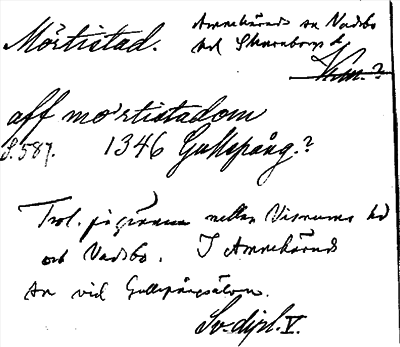 Mörtistad.
Amnehärads sn Vadsbo
hd Skaraborgs l.
aff mortistadom
S. 587. 1346 Gullspång.?
Trol. på gränsen mellan Visnums hd
och Vadsbo. I Amnehärads
sn vid Gullspångsälven.
Sv. dipl. V.